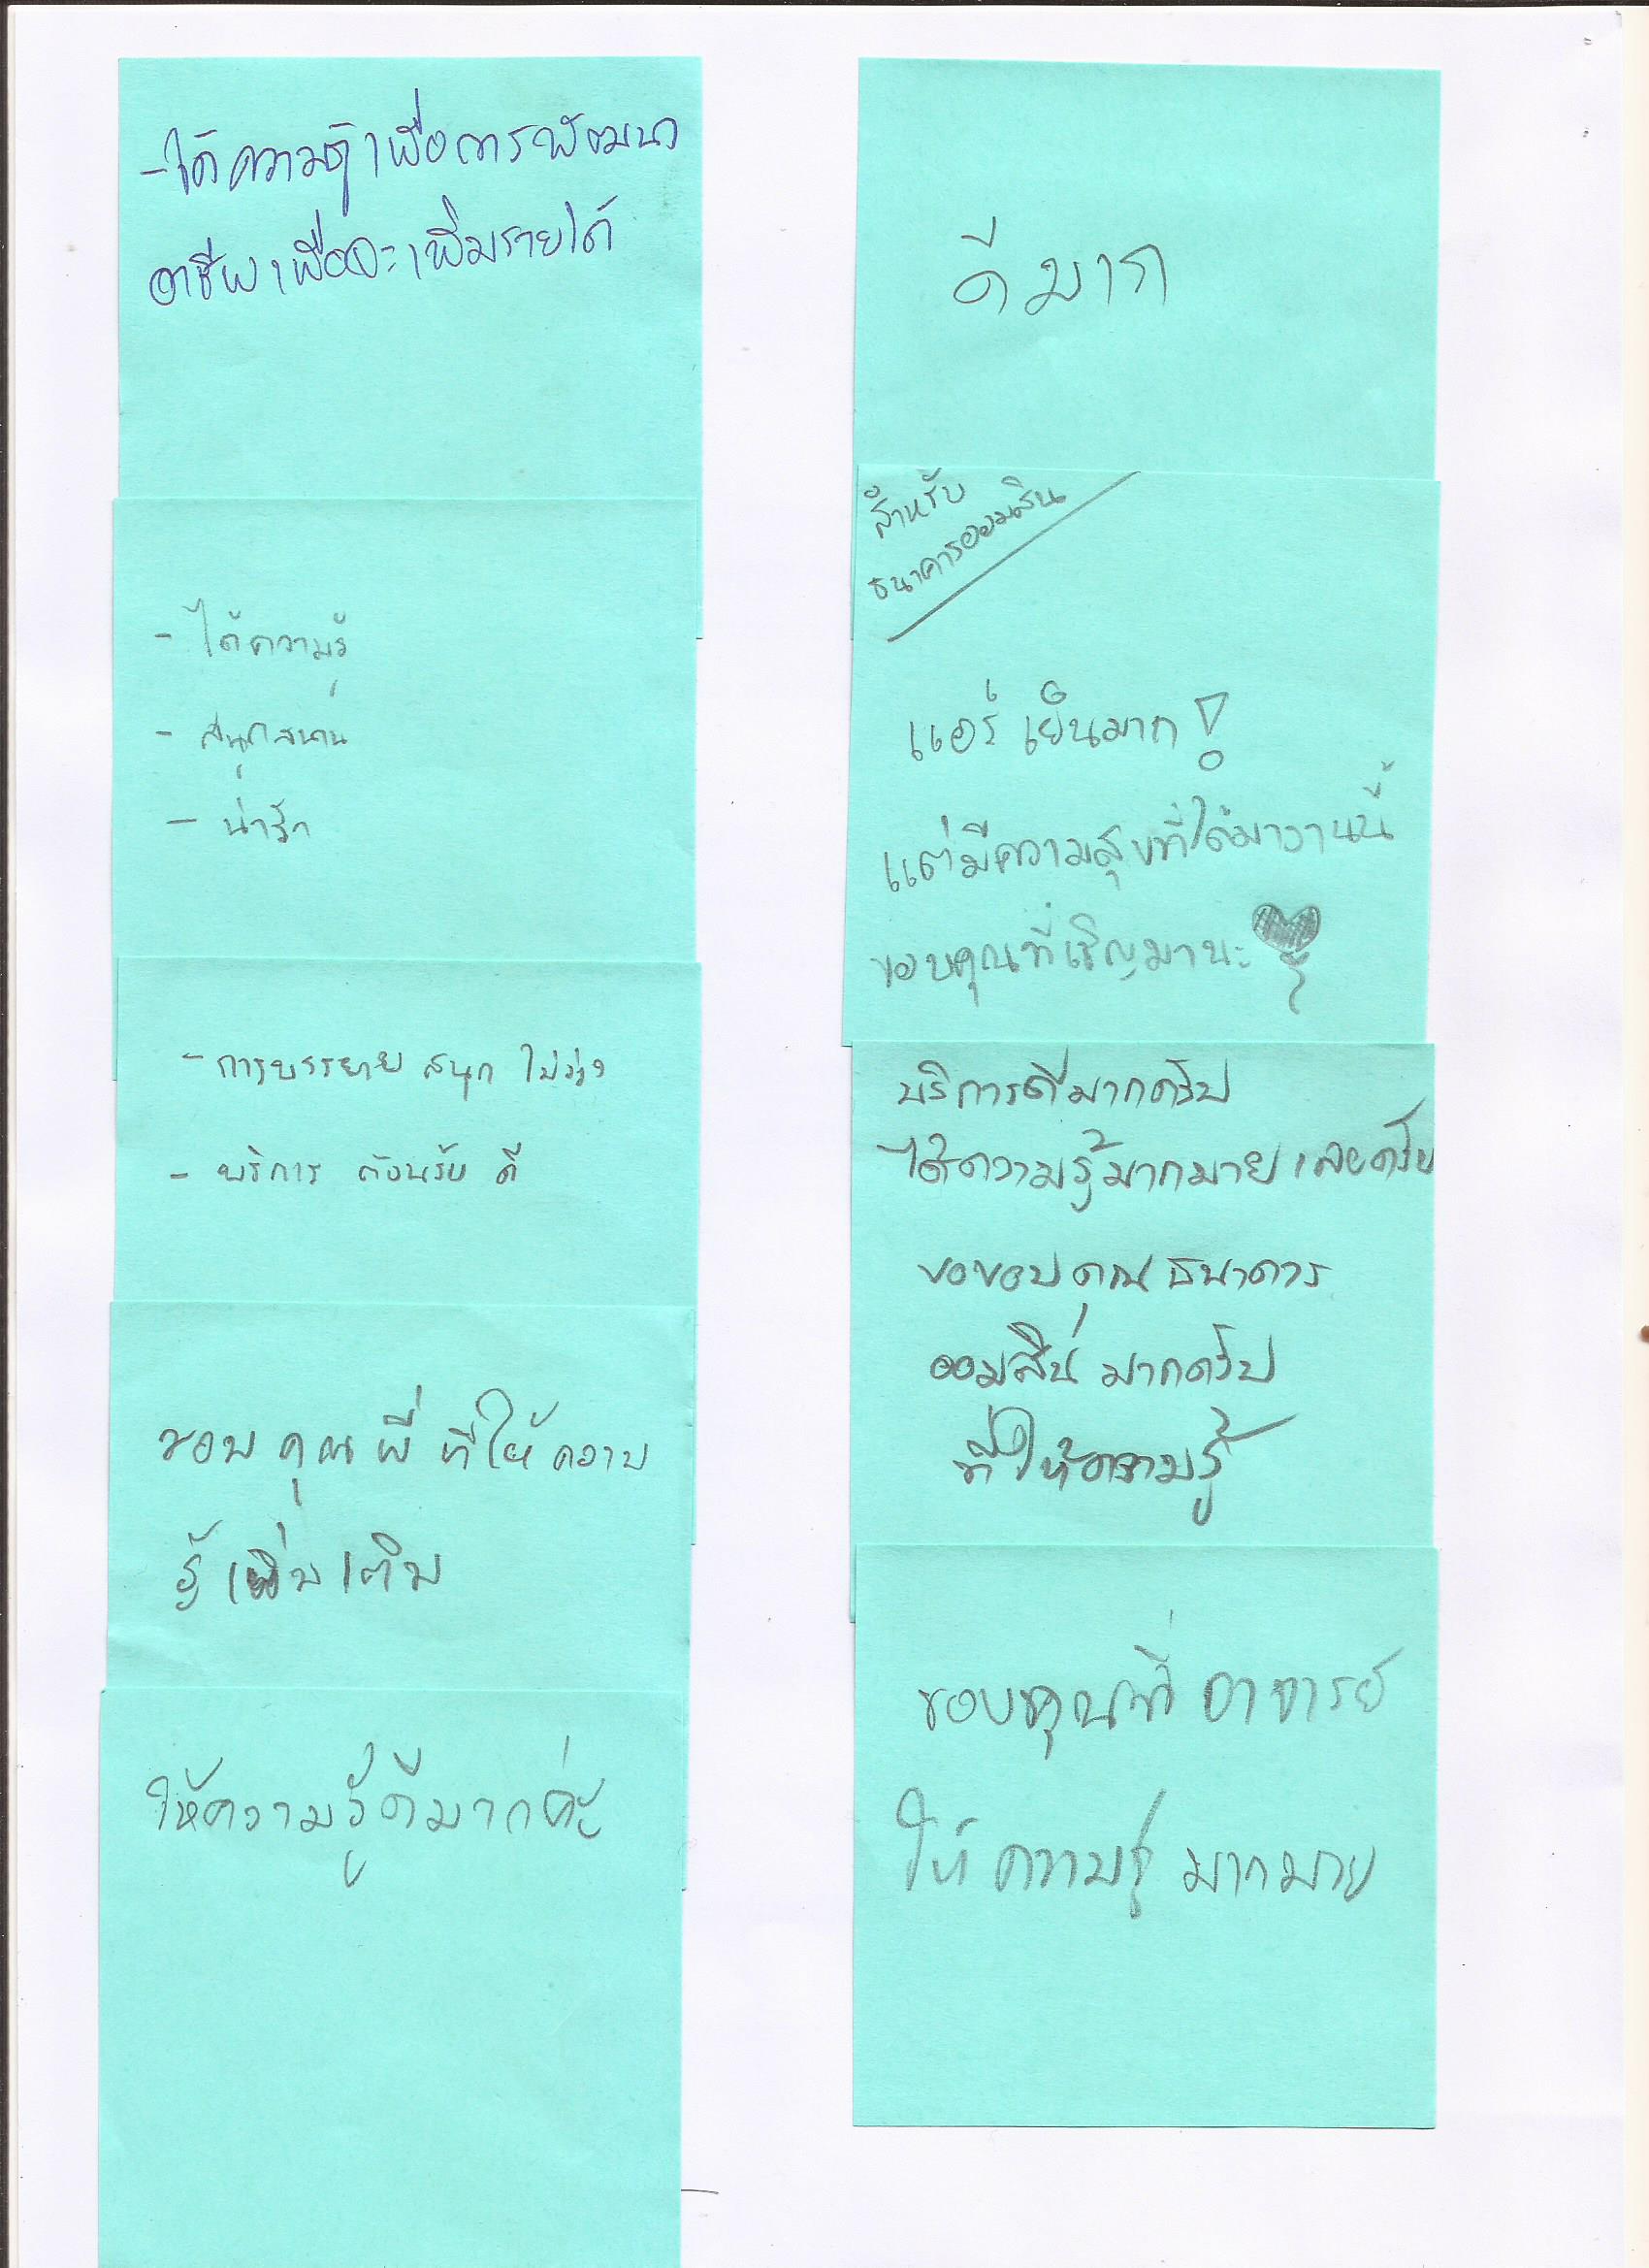 -ได้ความรู้เพื่อการพัฒนา
อาชีพเพื่อจะเพิ่มรายได้
- ได้ความรู้
- สนุกสนาน
- น่ารัก
- การบรรยาย สนุก ไม่ง่วง
- บริการ ต้อนรับ ดี
ขอบคุณพี่ ที่ให้ความ
รู้เพิ่มเติม
ให้ความรู้ดีมากค่ะ
ดีมาก
สำหรับ
ธนาคารออมสิน
แอร์ เย็นมาก!
แต่มีความสุขที่ได้มางานนี้
ขอบคุณที่เชิญมานะ
บริการดีมากครับ
ได้ความรู้มากมายเลยครับ
ขอขอบคุณ ธนาคาร
ออมสิน มากครับ
ที่ให้ความรู้
ขอบคุณที่ อาจารย์
ให้ ความรู้ มากมาย